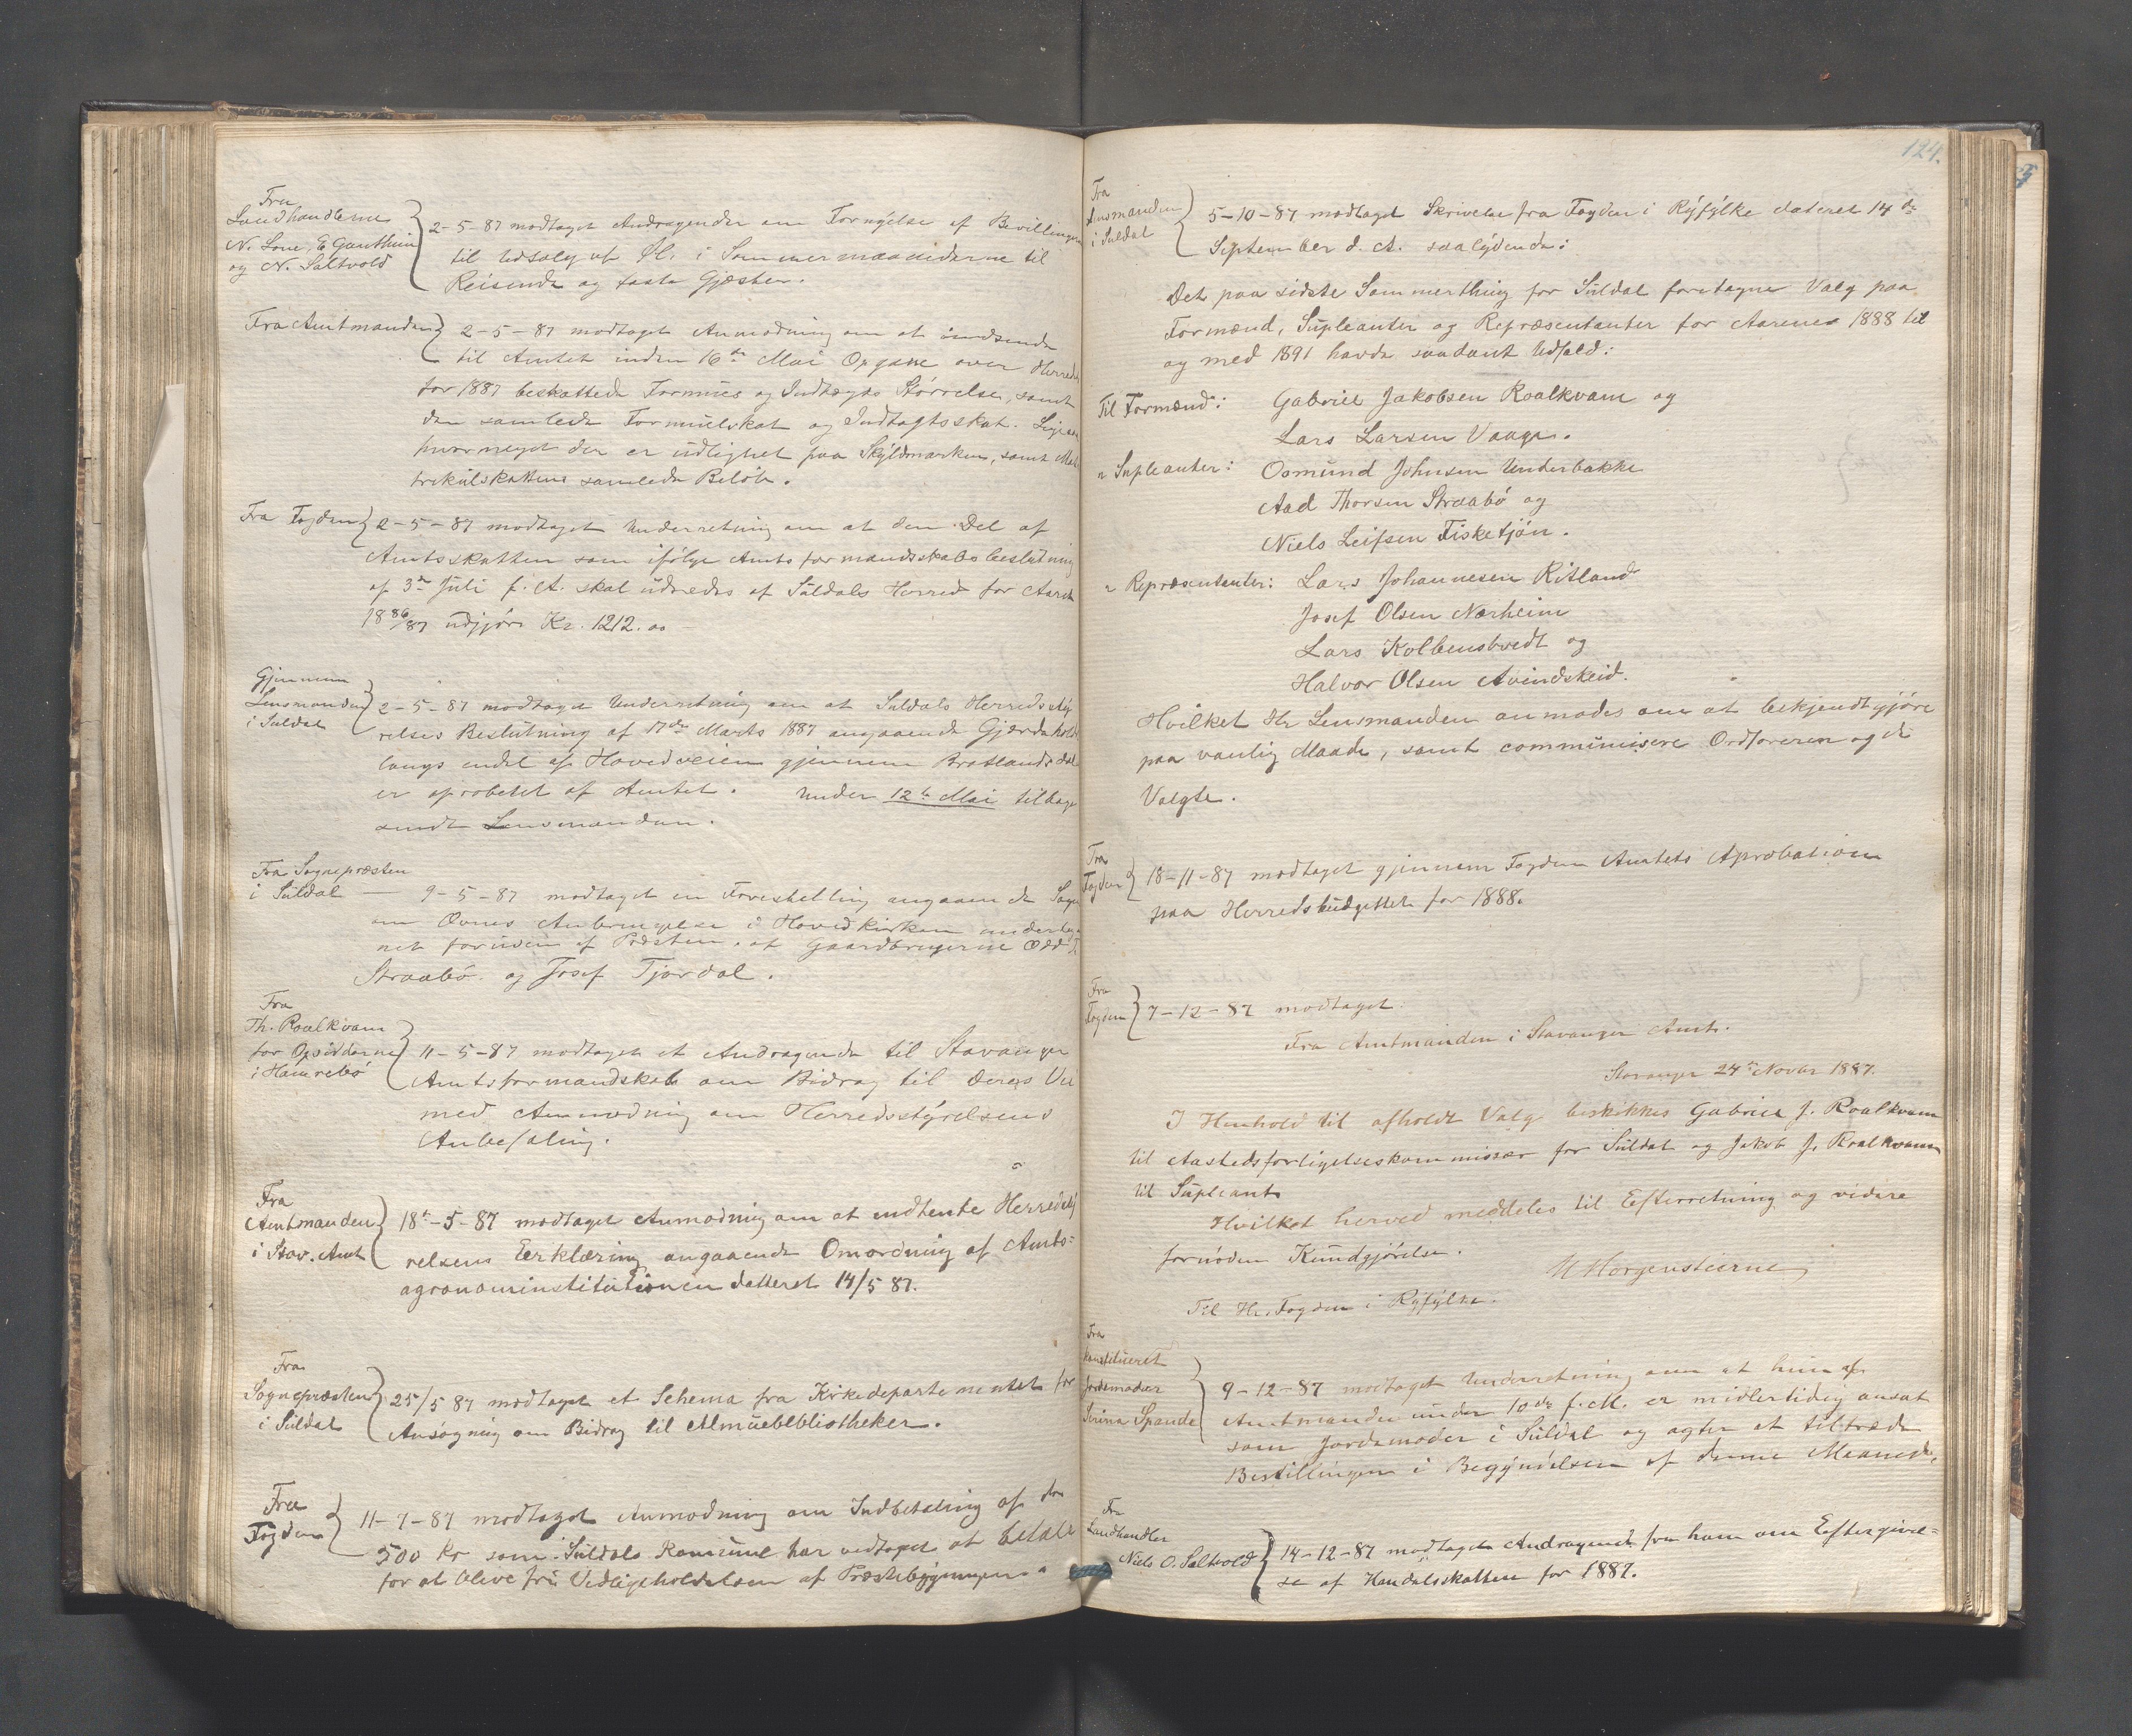 Fra
Landhandlerne
N. Lone, E. Ganthun
og N. Saltvold
2-5-87 modtaget Andragender om Fornyelse af Bevillingen
til Udsalg af Øl i Sommermaanederne til
Reisende og faste Gjæster.
Fra Amtmanden
2-5-87 modtaget Anmodning om at indsende
til Amtet inden 16de Mai Opgave over Herredets
for 1887 beskattede Formues og Indtægts Størrelse, samt
den samlede Formueskat og Indtægtsskat. Ligesaa
hvormeget der er udlignet paa Skyldmarken, samt Mat-
trikulskattens samlede Beløb.
Fra Fogden
2-5-87 modtaget Underretning om at den Del af
Amtsskatten som ifølge Amtsformandskabsbeslutning
af 3de Juli f. A. skal udredes af Suldals Herred for Aaret
1886/87 udgjør Kr. 1212.00
Gjennem
Lensmanden
i Suldal
2-5-87 modtaget Underretning om at Suldals Herredssty-
relses Beslutning af 17de Marts 1887 angaaende Gjærdehold
langs endel af Hovedveien gjennem Bratlandsdal
er aprobetet af Amtet. Under 12te Mai tilbage
sendt Lensmanden.
Fra Sognepræsten
i Suldal
9-5-87 modtaget en Forestilling angaaende
om Ovnes Anbringelse i Hovedkirken undertegnet
foruden af Præsten, af Gaardbrugerne Odd T.
Straabø og Josef Tjordal.
Fra
Th. Roalkvam
for Opsidderne
i Hamrebø
11-5-87 modtaget et Andragende til Stavanger
Amtsformandskab om Bidrag til deres Vei
med Anmodning om Herredsstyrelsens
Anbefaling.
Fra
Amtmanden
i Stav. Amt
18de-5-87 modtaget Anmodning om at indhente Herredssty
relsens Eerklæring angaaende Omordning af Amts=
agronominstitutionen datteret 14/5 87.
Fra
Sognepræsten
i Suldal
25/5 87 modtaget et Schema fra Kirkedepartementet for
Ansøgning om Bidrag til Almuebibliotheker.
Fra
Fogden
11-7-87 modtaget Anmodning om Indbetaling af de
500 Kr som Suldals Kommune har vedtaget at betale
for at blive fri Vedligeholdelsen af Præstebygningen
124.
Fra
Lensmanden
i Suldal
5-10-87 modtaget Skrivelse fra Fogden i Ryfylke dateret 14de
September d. A. saalydende:
Det paa sidste Sommerthing for Suldal foretagne Valg paa
Formænd, Supleanter og Repræsentanter for Aarene 1888 til
og med 1891 havde saadant Udfald:
Til Formænd: Gabriel Jakobsen Roalkvam og
Lars Larsen Vaage.
" Supleanter: Osmund Johnsen Underbakke
Aad Thorsen Straabø og
Niels Leifsen Fisketjøn.
" Repræsentanter: Lars Johannesen Ritland
Josef Olsen Nærheim
Lars Kolbenstvedt og
Halvor Olsen Avindskeid.
Hvilket Hr Lensmanden anmodes om at bekjendtgjøre
paa vanlig Maade, samt communisere Ordføreren og de
Valgte.
Fra
Fogden
18-11-87 modtaget gjennem Fogden Amtets Aprobation
paa Herredsbudgettet for 1888.
Fra
Fogden
7-12-87 modtaget:
Fra Amtmanden i Stavanger Amt.
Stavanger 24de Novbr 1887.
I Henhold til afholdt Valg beskikkes Gabriel J. Roalkvam
til Aastedsforligelseskommissær for Suldal og Jakob J. Roalkvam
til Supleant
Hvilket herved meddeles til Efterretning og videre
fornøden Kundgjørelse.
M Morgenstierne
Til Hr. Fogden i Ryfylke.
Fra
Konstitueret
Jordemoder
Serina Spande
9-12-87 modtaget Underretning om at hun af
Amtmanden under 10de f. M. er midlertidig ansat
som Jordemoder i Suldal og agter at tiltræde
Bestillingen i Begyndelsen af denne Maaned.
Fra
Landhandler
Niels O. Saltvold
14-12-87 modtaget Andragende fra ham om Eftergivel=
se af Handelsskatten for 1887.